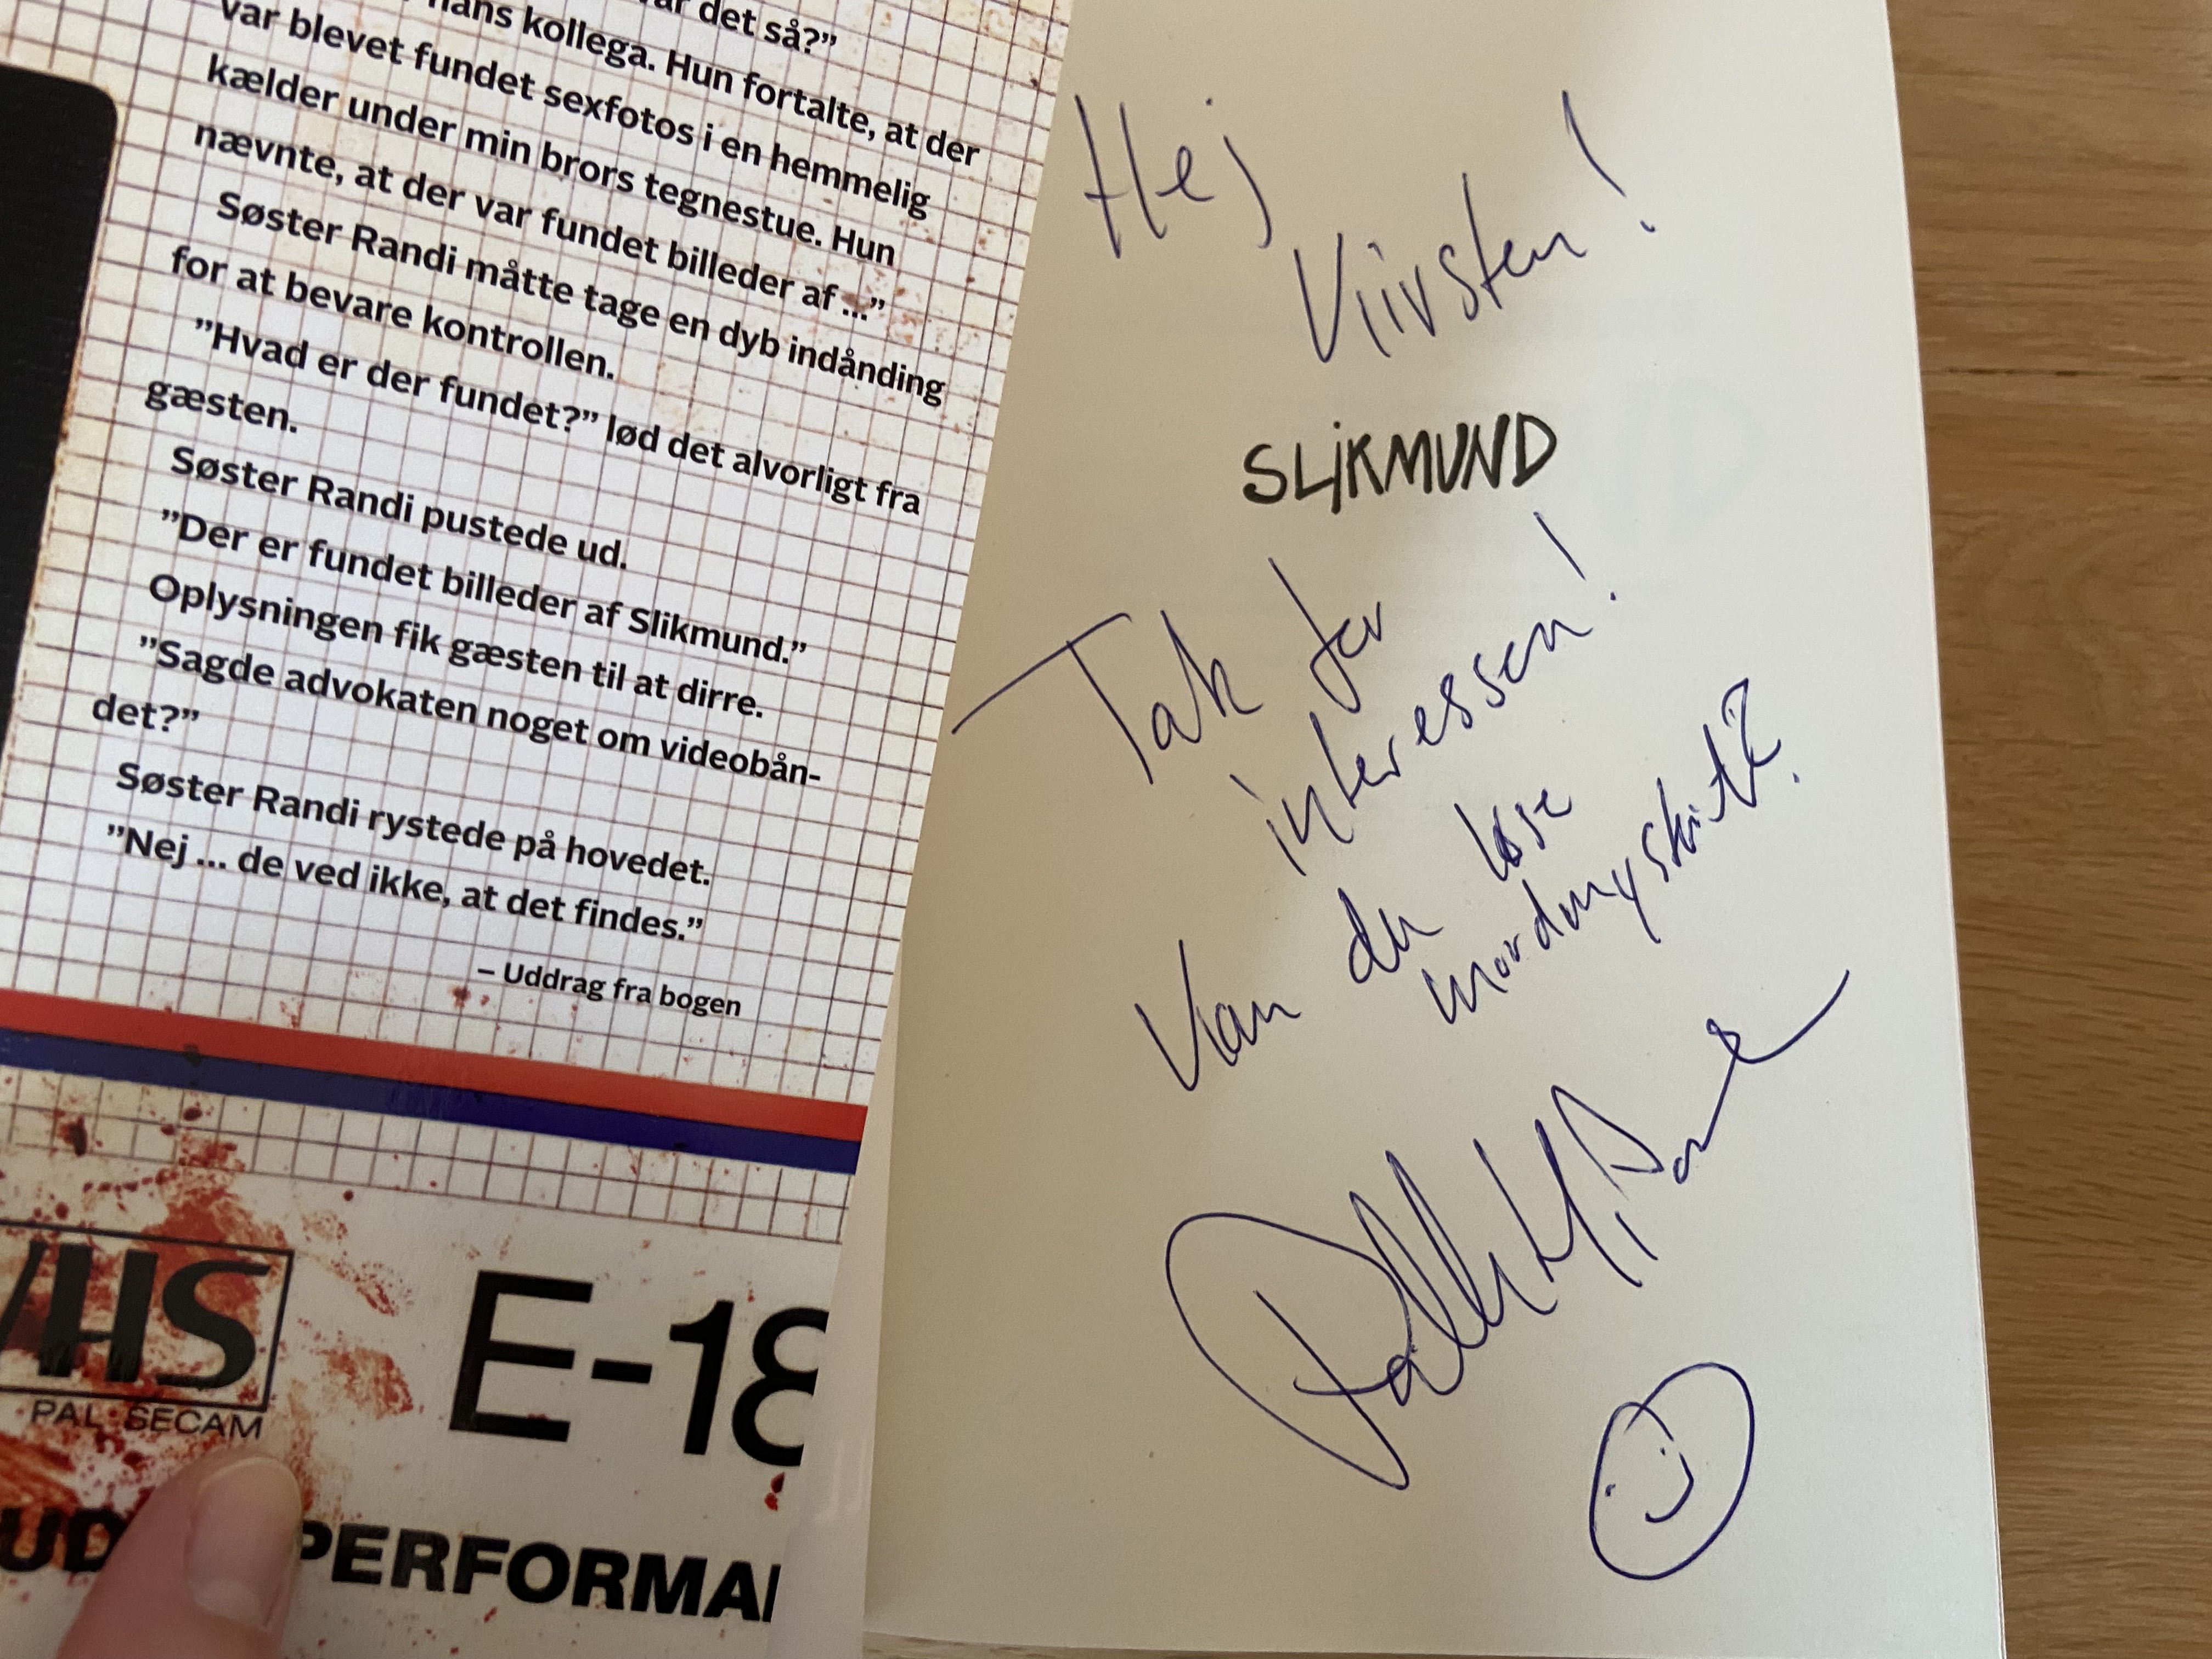 det så?”
hans kollega. Hun fortalte, at der
var blevet fundet sexfotos i en hemmelig
kælder under min brors tegnestue. Hun
nævnte, at der var fundet billeder af ...”
Søster Randi måtte tage en dyb indånding
for at bevare kontrollen.
”Hvad er der fundet?” lød det alvorligt fra
gæsten.
Søster Randi pustede ud.
”Der er fundet billeder af Slikmund.”
Oplysningen fik gæsten til at dirre.
”Sagde advokaten noget om videobån-
det?”
Søster Randi rystede på hovedet.
”Nej ... de ved ikke, at det findes.”
– Uddrag fra bogen
VHS
PAL SECAM
E-18
UD PERFORMA
Hej
Kirsten!
SLIKMUND
Tak for
interessen!
Kan du løse
mordmysteriet?